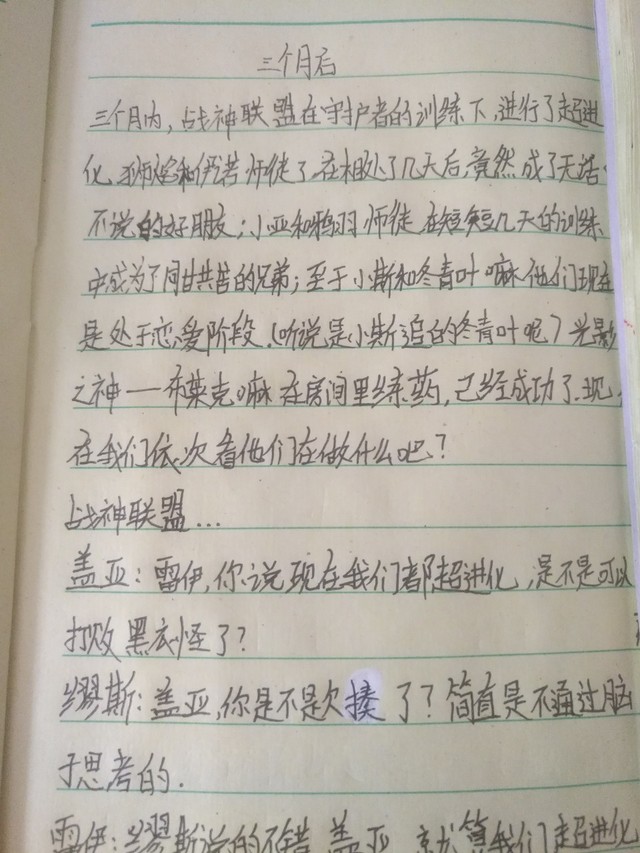 三个月后
三个月内，战神联盟在守护者的训练下，进行了超进
化，和伊若师徒了，在相处了几天后，竟然成了无话
不说的好朋友；小亚和鸦羽师徒，在短短几天的训练
中成为了同甘共苦的兄弟；至于小斯和冬青叶嘛他们现在
是处于恋爱阶段.（听说是小斯追的冬青叶呢）光影
之神——布莱克嘛在房间里练药，已经成功了.现
在我们依次看他们在做什么吧？
战神联盟…
盖亚：雷伊，你说现在我们都超进化，是不是可以
打败黑衣怪了？
缪斯：盖亚，你是不是欠揍了？简直是不通过脑
于思考的.
雷伊：缪斯说的不错，盖亚，就算我们超进化